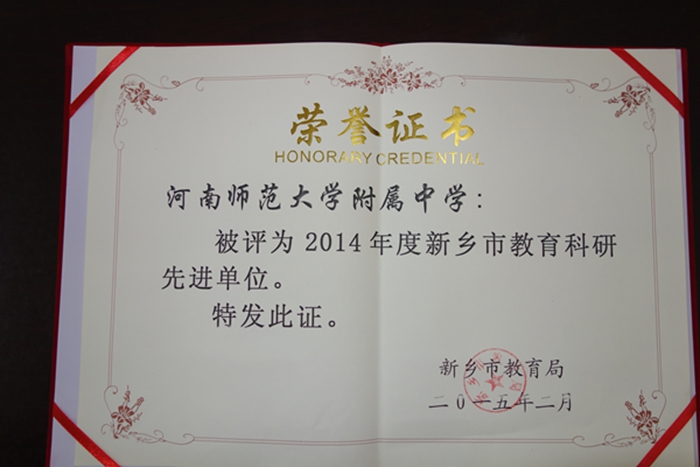 荣誉证书
HONORARY CREDENTIAL
河南师范大学附属中学：
被评为2014年度新乡市教育科研
先进单位。
特发此证。
新乡市教育局
二〇一五年二月